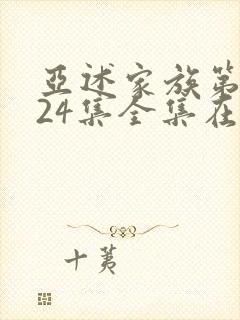 亚述家族第
24集全集在
十荑